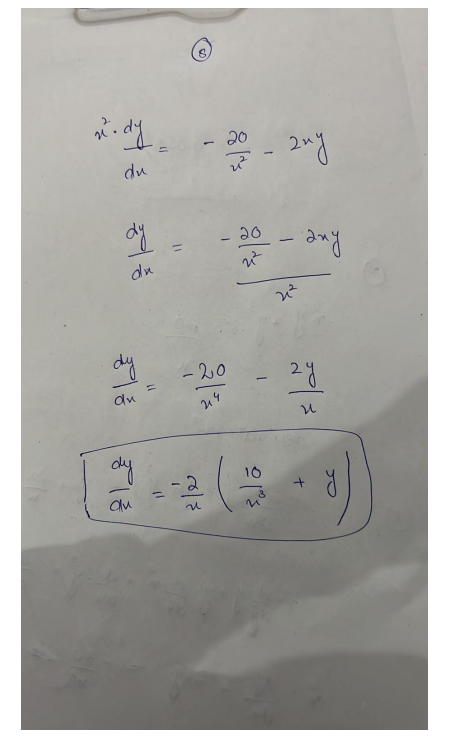 8
x² · dy/dx = - 20/x² - 2xy
dy/dx = (- 20/x² - 2xy)/x²
dy/dx = -20/x⁴ - 2y/x
dy/dx = -2/x (10/x³ + y)